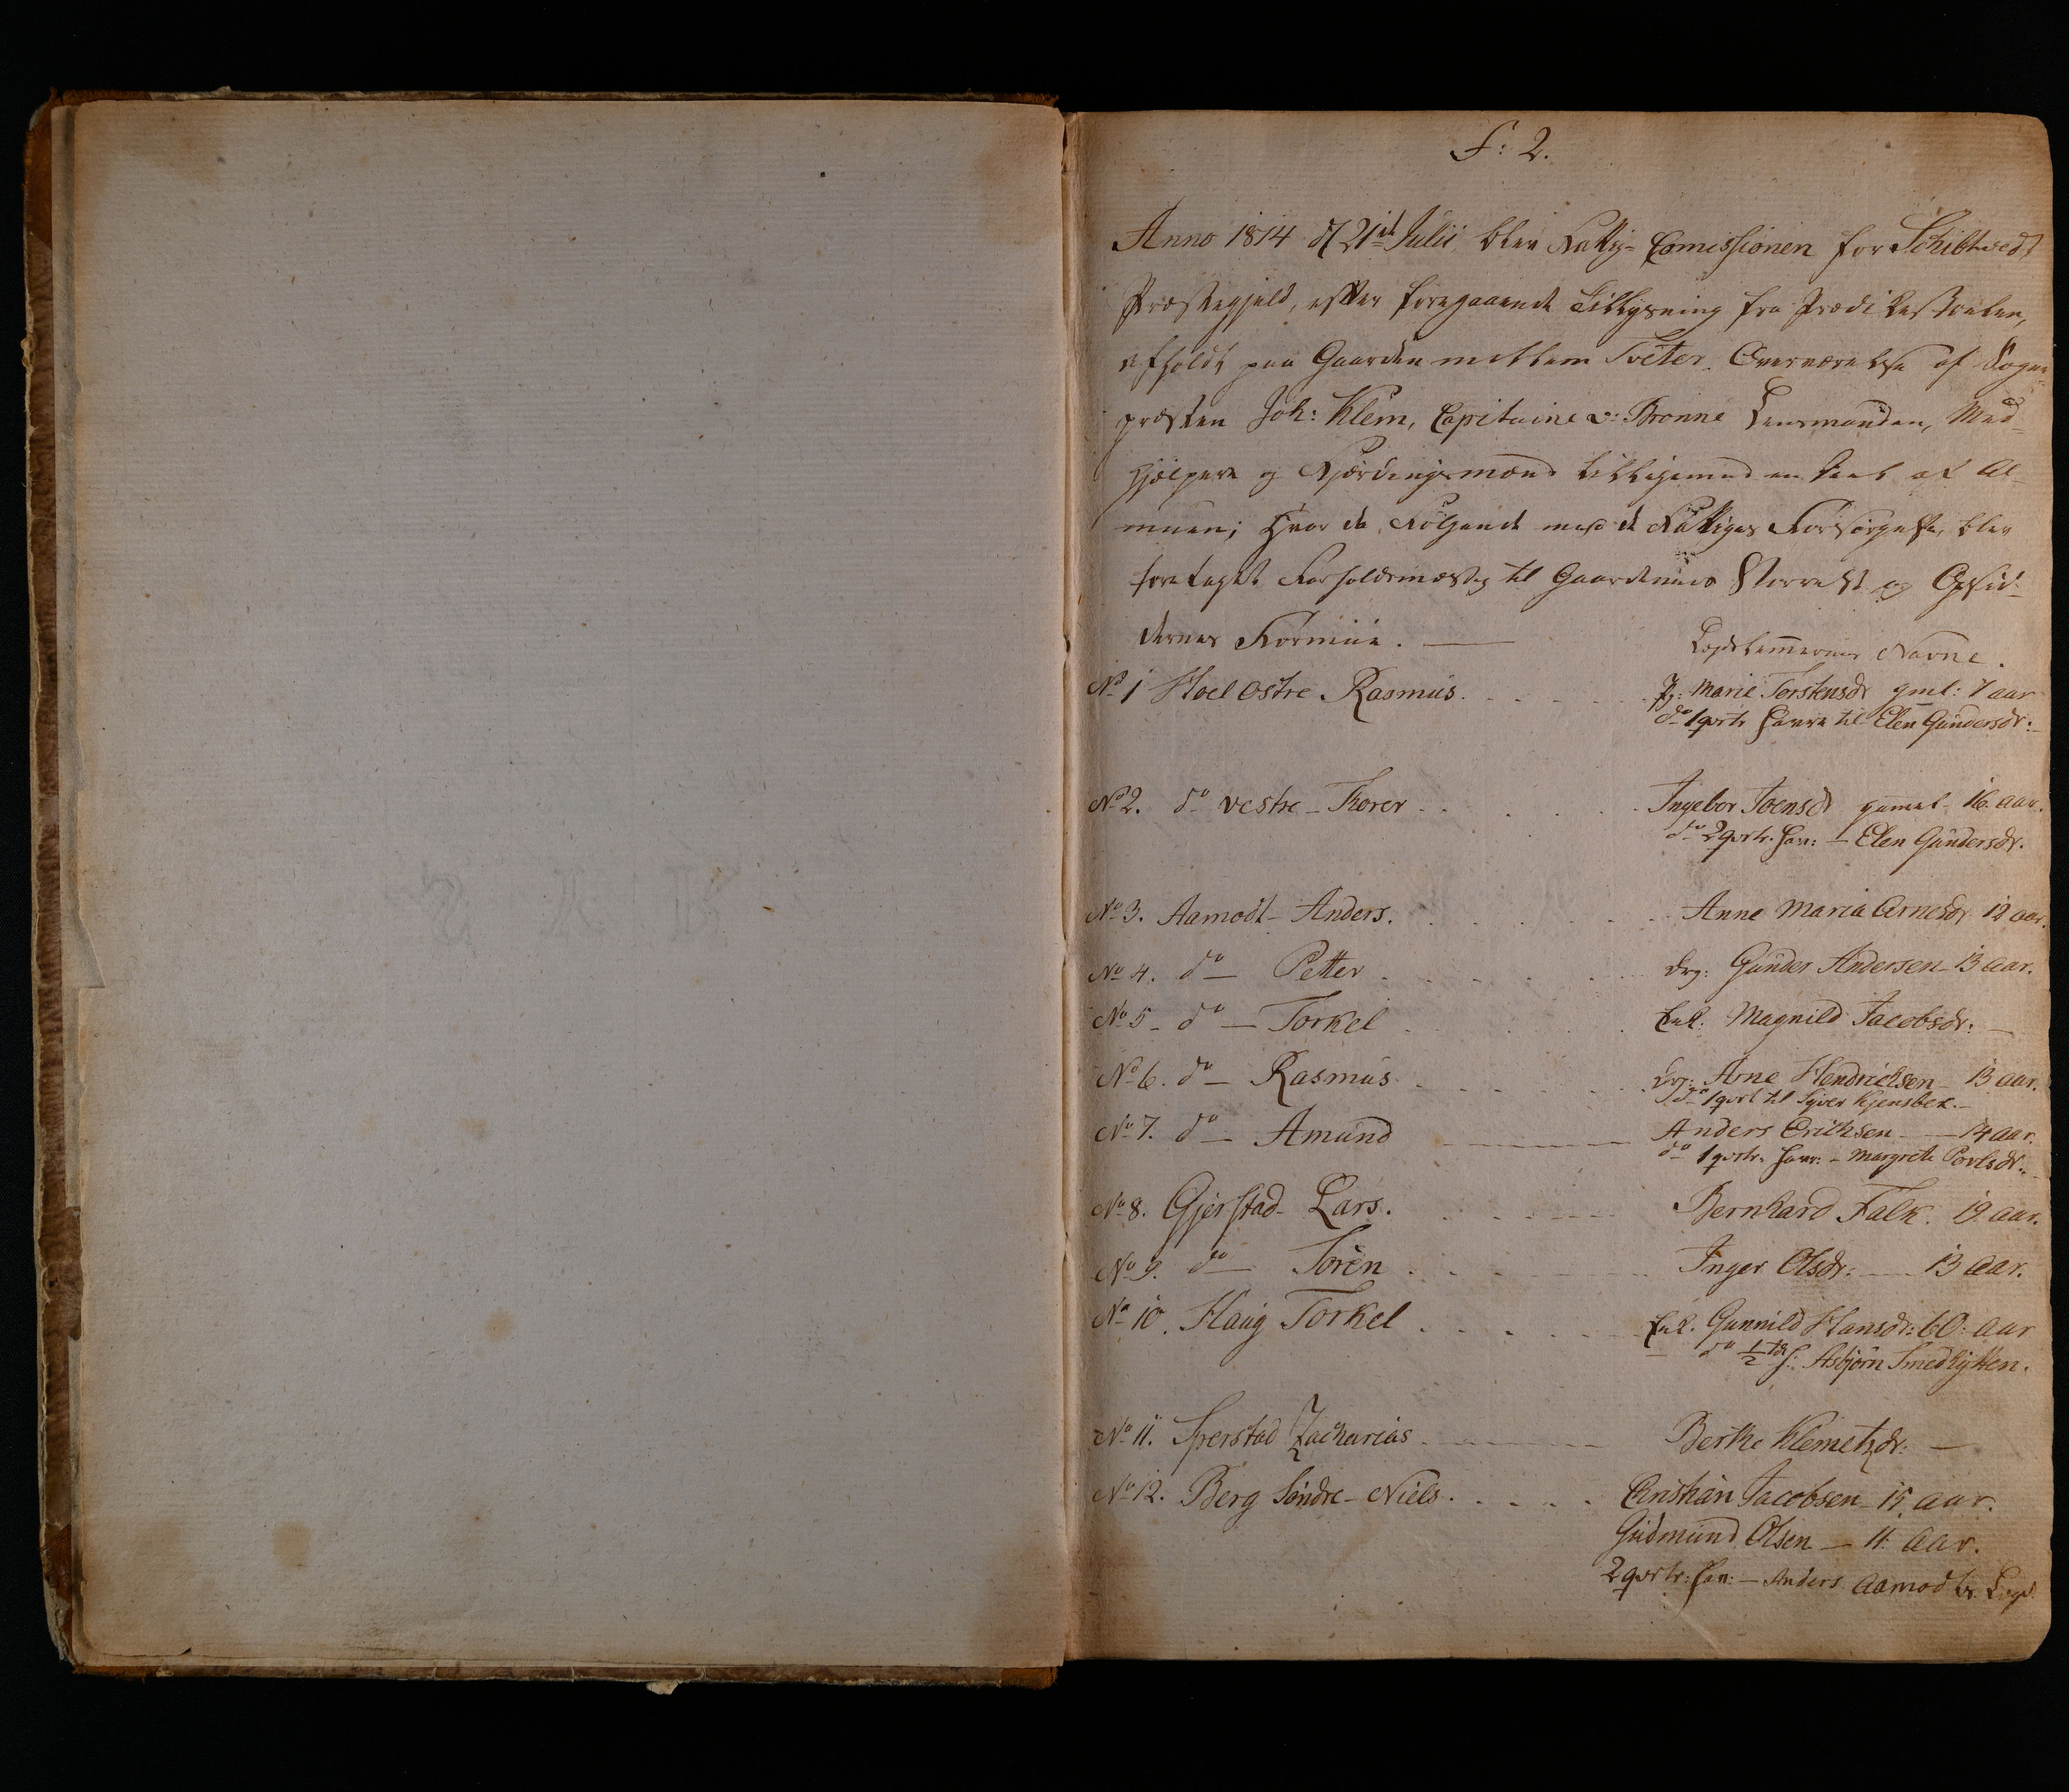 F: 2.
Anno 1814 d 21de Julii blev Fattig-Comissionen for Schibtvedt
Præstegjeld, efter foregaaende Tillysning fra Prædikestoelen,
afholdt paa Gaarden mellem Tveter. Overværelse af Sogne-
præsten Joh: Klem, Capitaine v: Bronne Lensmanden, Med-
hjælpere og Fjerdingsmænd tilligemed en Deel af Al-
muen; hvor da Følgende med de Fattiges Forsørgelse, blev
foretaget Forholdsmæssig til Gaardenes Størrelse og Opsid-
dernes Formue. —
Lægdslemmernes Navne.
No 1 Hoel Østre Rasmus. Pg: Marie Torstensdr gml: 7 aar
do 1 qvrtr havre til Elen Gundersdr:
No 2. do vestre - Thorer Ingebor Joensdr gamel 16 aar.
do 2 qvrtr. hav: — Elen Gundersdr.
No 3. Aamodt - Anders. Anne Maria Arnesdr 12 aar.
No 4. do — Petter Drg: Gunder Andersen - 13 aar.
No 5 - do — Torkel Enk: Magnild Jacobsdr: —
No 6. do — Rasmus Drg: Arne Hendrichsen - 13 aar.
do 1 qvrt til Syver Kjensbek. —
No 7. do — Amund Anders Erichsen — 14 aar.
do 1 qvrtr. havr: - Margrete Povlsdr.
No 8. Gjerstad - Lars. Bernhard Falk. 19 aar.
No 9. do — Soren Inger Olsdr: — 13 aar.
No 10. Haug Torkel Enk. Gunnild Hansdr: 60: aar
do 1/2 td h: Asbjörn Smedhytten.
No 11. Sperstad Zacharias Berthe Klemetsdr: —
No 12. Berg Söndre - Niels. Christian Jacobsen - 15 aar.
Gudmund Olsen — 11. aar.
2 qvrtr: hav: — Anders Aamodts Lægd